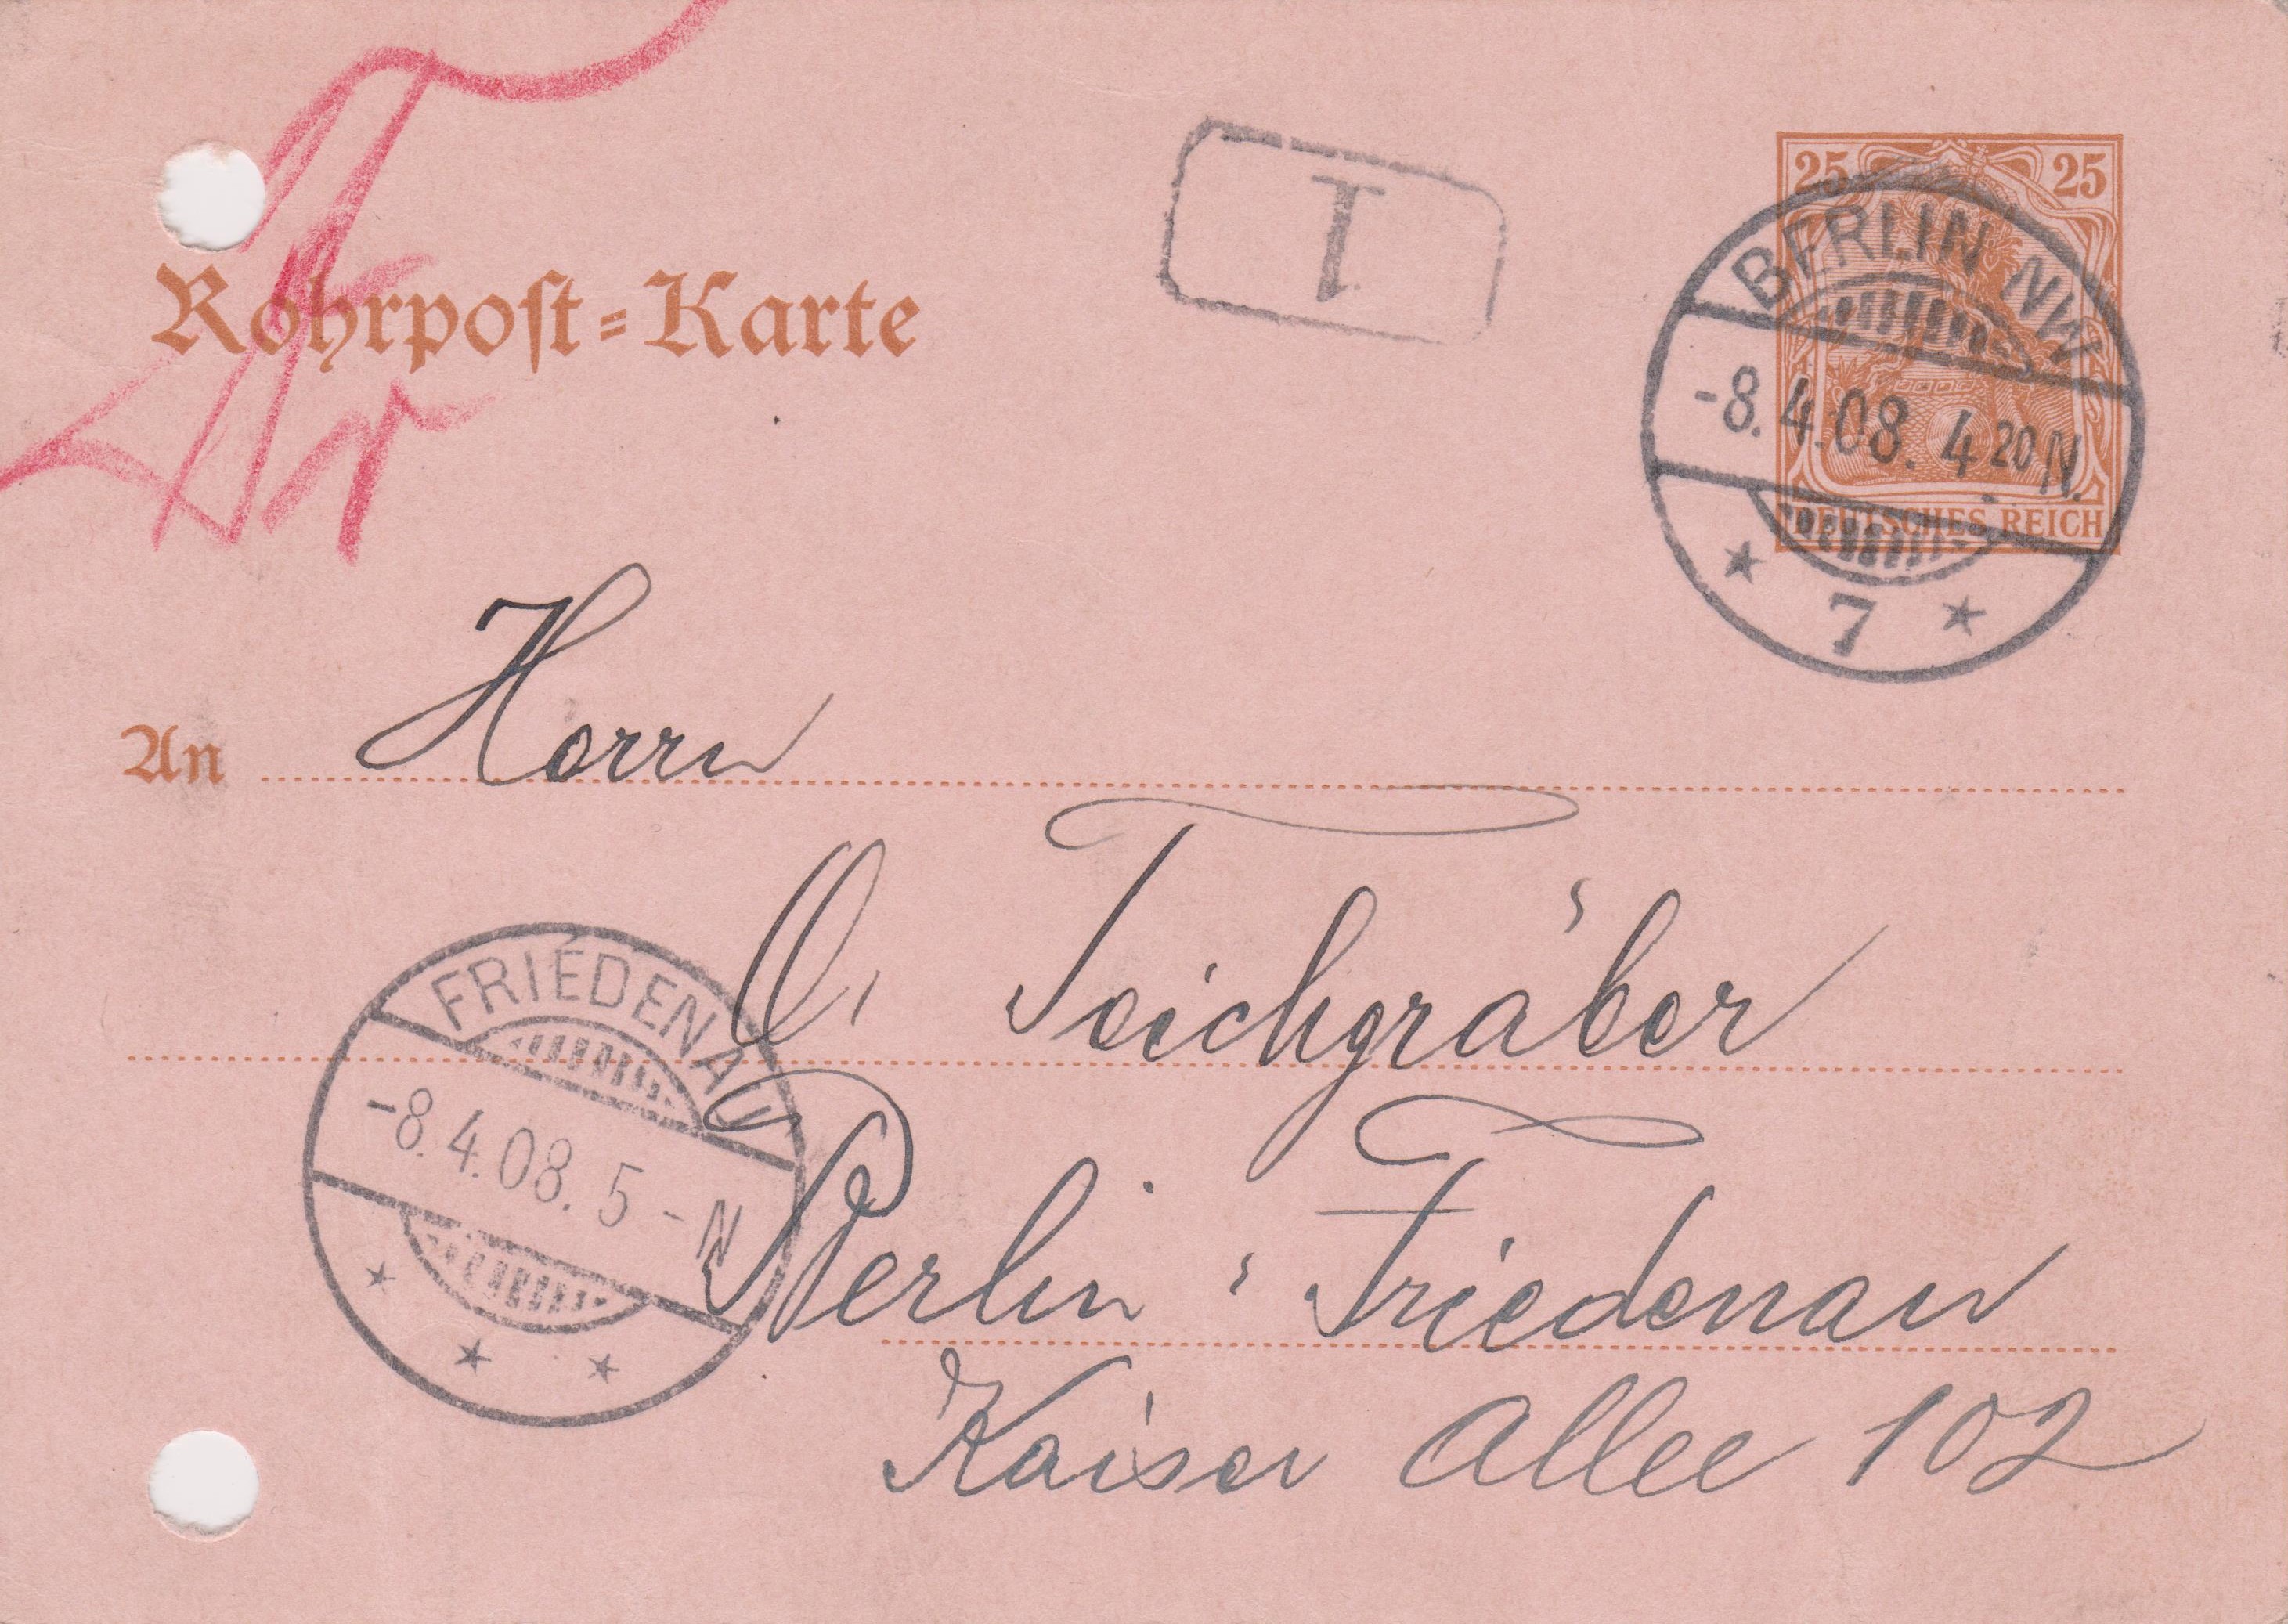 Rohrpost-Karte
1
25 25
DEUTSCHES REICH
BERLIN NW
-8.4.08. 4 20 N.
* 7 *
An Herrn
O. Teichgräber
Berlin-Friedenau
Kaiser Allee 102
FRIEDENAU
-8.4.08. 5-N
* * *